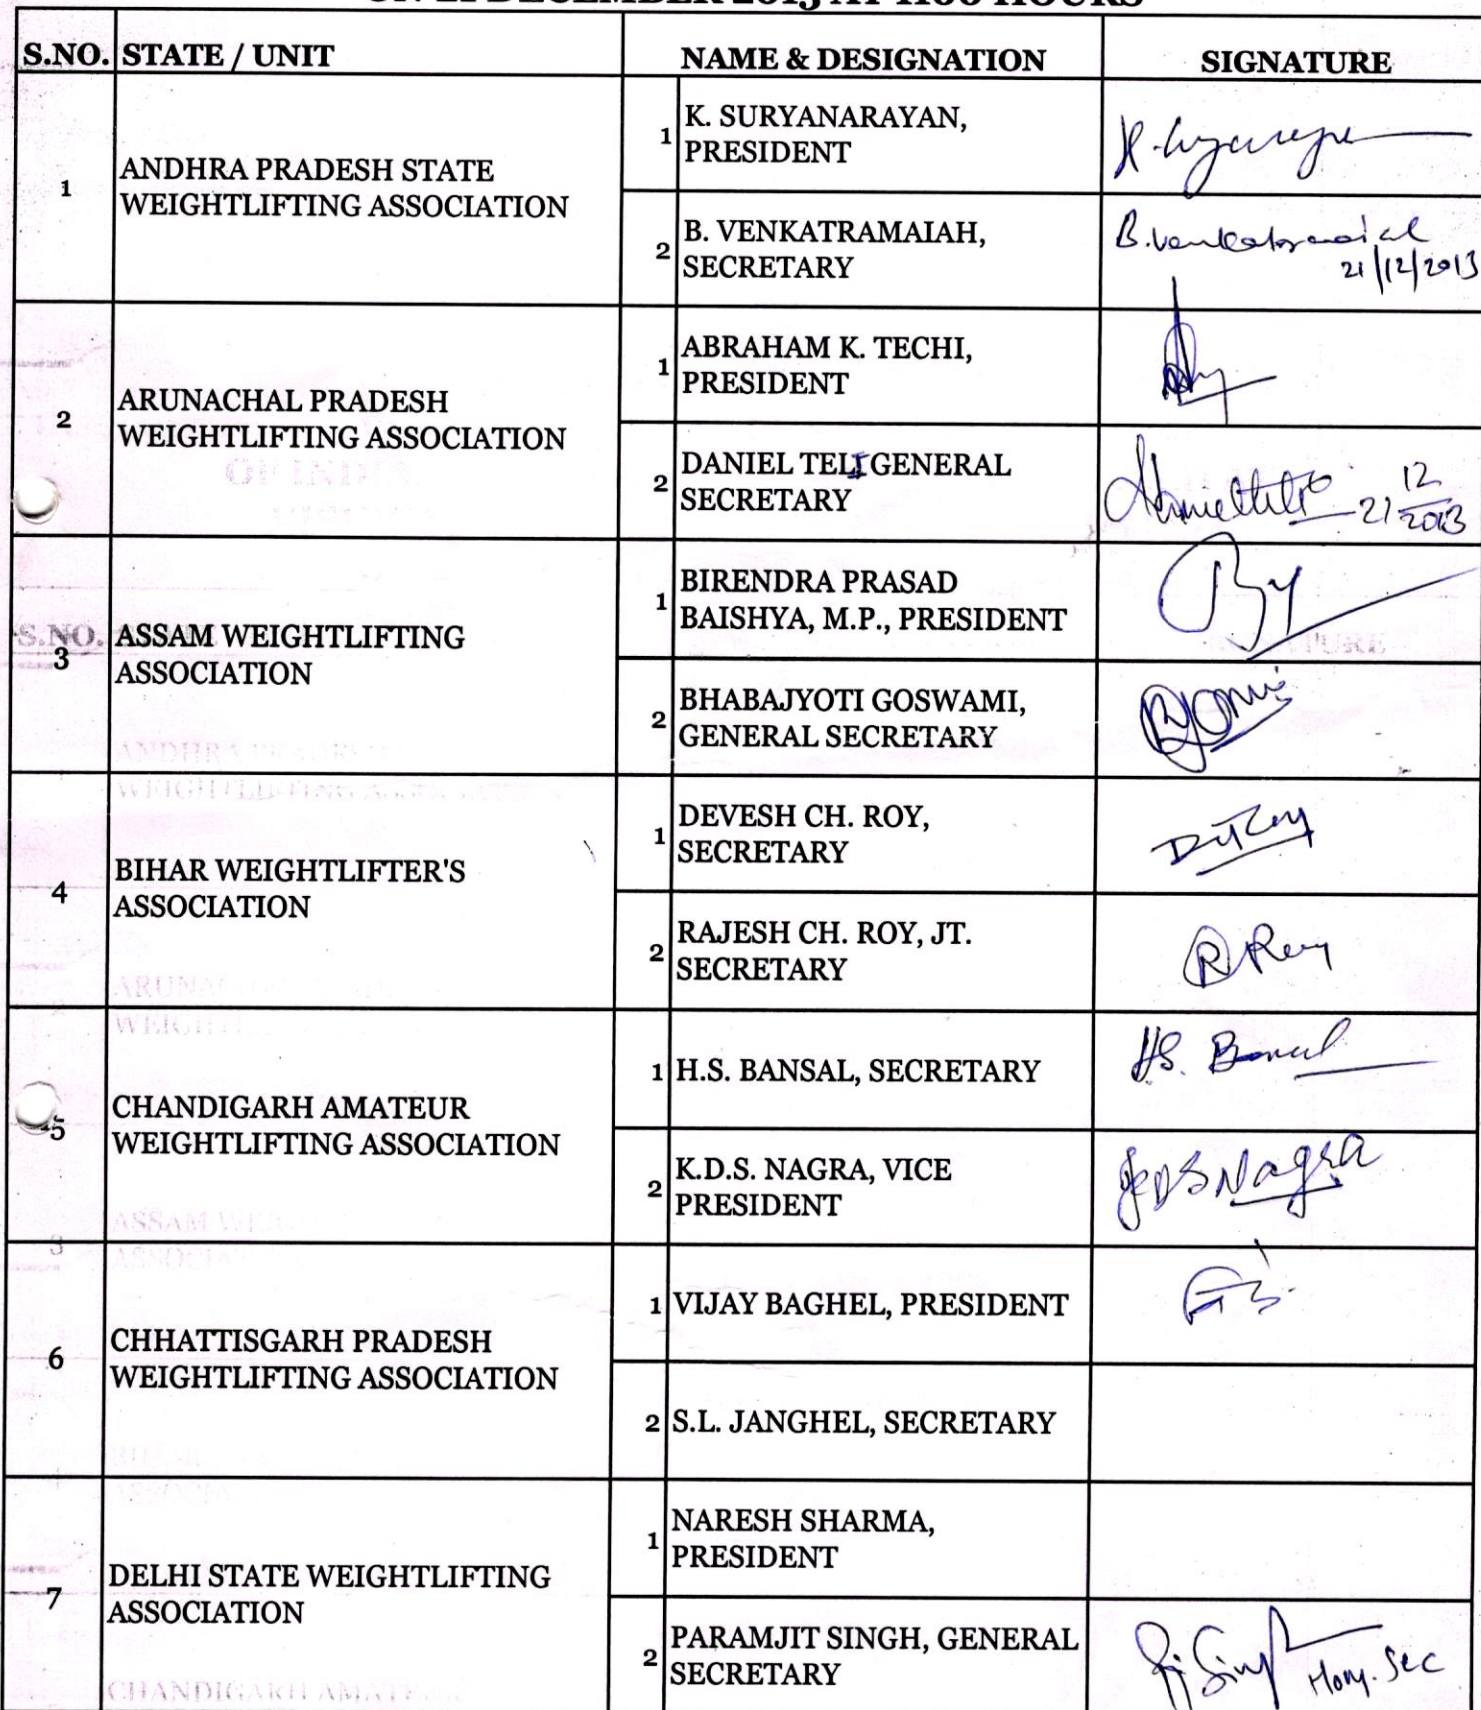 ON 21 DECEMBER 2013 AT 1100 HOURS
S.NO. STATE / UNIT NAME & DESIGNATION SIGNATURE
1 ANDHRA PRADESH STATE
WEIGHTLIFTING ASSOCIATION
1 K. SURYANARAYAN,
PRESIDENT
2 B. VENKATRAMAIAH,
SECRETARY
B. Venkatramaiah
21/12/2013
2 ARUNACHAL PRADESH
WEIGHTLIFTING ASSOCIATION
1 ABRAHAM K. TECHI,
PRESIDENT
2 DANIEL TELI GENERAL
SECRETARY
21 12
2013
OF INDIA
3 ASSAM WEIGHTLIFTING
ASSOCIATION
S.NO.
1 BIRENDRA PRASAD
BAISHYA, M.P., PRESIDENT
2 BHABAJYOTI GOSWAMI,
GENERAL SECRETARY
4 BIHAR WEIGHTLIFTER'S
ASSOCIATION
1 DEVESH CH. ROY,
SECRETARY
2 RAJESH CH. ROY, JT.
SECRETARY
R Roy
5 CHANDIGARH AMATEUR
WEIGHTLIFTING ASSOCIATION
1 H.S. BANSAL, SECRETARY
H.S. Bansal
2 K.D.S. NAGRA, VICE
PRESIDENT
KDS Nagra
6 CHHATTISGARH PRADESH
WEIGHTLIFTING ASSOCIATION
1 VIJAY BAGHEL, PRESIDENT
2 S.L. JANGHEL, SECRETARY
7 DELHI STATE WEIGHTLIFTING
ASSOCIATION
1 NARESH SHARMA,
PRESIDENT
2 PARAMJIT SINGH, GENERAL
SECRETARY
Singh Hony. Sec